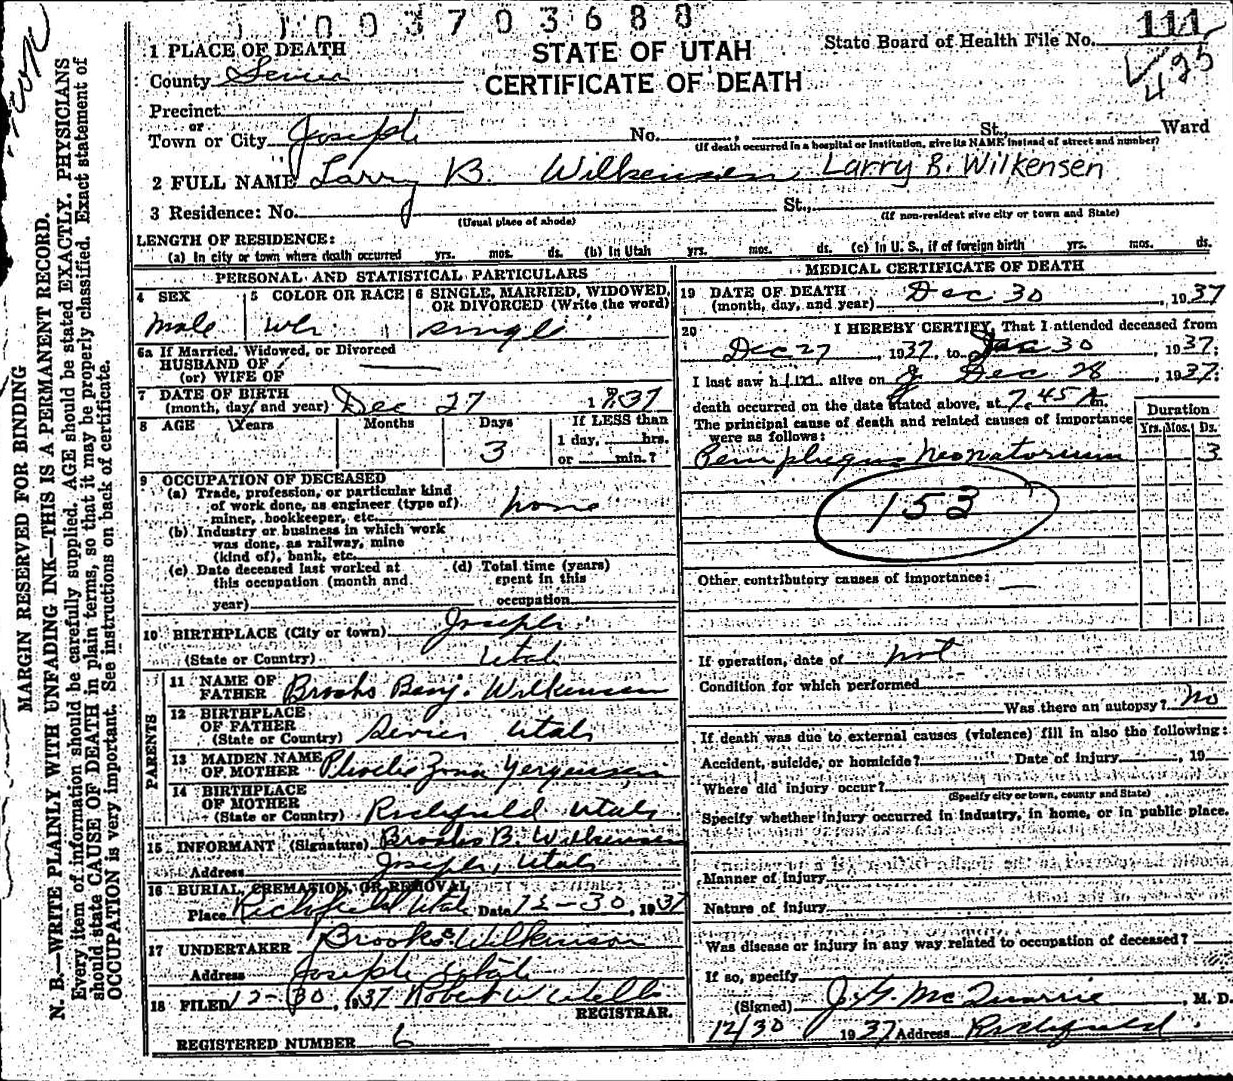 11003703688
111
435
1 PLACE OF DEATH
STATE OF UTAH
State Board of Health File No.
County Sevier
CERTIFICATE OF DEATH
Precinct
or
Town or City Joseph No. , St., Ward
(If death occurred in a hospital or institution, give its NAME instead of street and number)
2 FULL NAME Larry B. Wilkensen Larry B. Wilkensen
3 Residence: No. St.,
(Usual place of abode) (If non-resident give city or town and State)
LENGTH OF RESIDENCE:
(a) In city or town where death occurred yrs. mos. ds. (b) in Utah yrs. mos. ds. (c) in U. S., if of foreign birth yrs. mos. ds.
PERSONAL AND STATISTICAL PARTICULARS
4 SEX
male
5 COLOR OR RACE
wh
6 SINGLE, MARRIED, WIDOWED, OR DIVORCED (Write the word)
single
6a If Married, Widowed, or Divorced
HUSBAND OF
(or) WIFE OF
7 DATE OF BIRTH
(month, day, and year) Dec 27 1937
8 AGE Years Months Days If LESS than
3 1 day, hrs.
or min.?
9 OCCUPATION OF DECEASED
(a) Trade, profession, or particular kind
of work done, as engineer (type of)
miner, bookkeeper, etc. none
(b) Industry or business in which work
was done, as railway, mine
(kind of), bank, etc.
(c) Date deceased last worked at
this occupation (month and
year)
(d) Total time (years)
spent in this
occupation
10 BIRTHPLACE (City or town) Joseph
(State or Country) Utah
PARENTS
11 NAME OF
FATHER Brooks Benj. Wilkensen
12 BIRTHPLACE
OF FATHER
(State or Country) Sevier Utah
13 MAIDEN NAME
OF MOTHER Phoebe Zona Yergensen
14 BIRTHPLACE
OF MOTHER
(State or Country) Richfield Utah
15 INFORMANT (Signature) Brooks B. Wilkensen
Address Joseph, Utah
16 BURIAL, CREMATION, OR REMOVAL
Place Richfield Utah Date 12-30, 1937
17 UNDERTAKER Brooks Wilkinson
Address Joseph Utah
18 FILED 12-30, 1937 Robert W Wells
REGISTRAR.
REGISTERED NUMBER 6
MEDICAL CERTIFICATE OF DEATH
19 DATE OF DEATH
(month, day, and year) Dec 30, 1937
20 I HEREBY CERTIFY, That I attended deceased from
Dec 27, 1937, to Dec 30, 1937;
I last saw him alive on Dec 28, 1937;
death occurred on the date stated above, at 7.45 A m.
The principal cause of death and related causes of importance
were as follows:
Duration
Yrs. Mos. Ds.
Pemphegus Neonatorium 3
153
Other contributory causes of importance:
If operation, date of not
Condition for which performed
Was there an autopsy? No
If death was due to external causes (violence) fill in also the following:
Accident, suicide, or homicide? Date of injury , 19
Where did injury occur?
(Specify city or town, county and State)
Specify whether injury occurred in industry, in home, or in public place.
Manner of injury
Nature of injury
Was disease or injury in any way related to occupation of deceased?
If so, specify
(Signed) J. G. McQuarrie, M. D.
12/30 1937 Address Richfield.
MARGIN RESERVED FOR BINDING
N. B.—WRITE PLAINLY WITH UNFADING INK—THIS IS A PERMANENT RECORD.
Every item of information should be carefully supplied. AGE should be stated EXACTLY. PHYSICIANS
should state CAUSE OF DEATH in plain terms, so that it may be properly classified. Exact statement of
OCCUPATION is very important. See instructions on back of certificate.